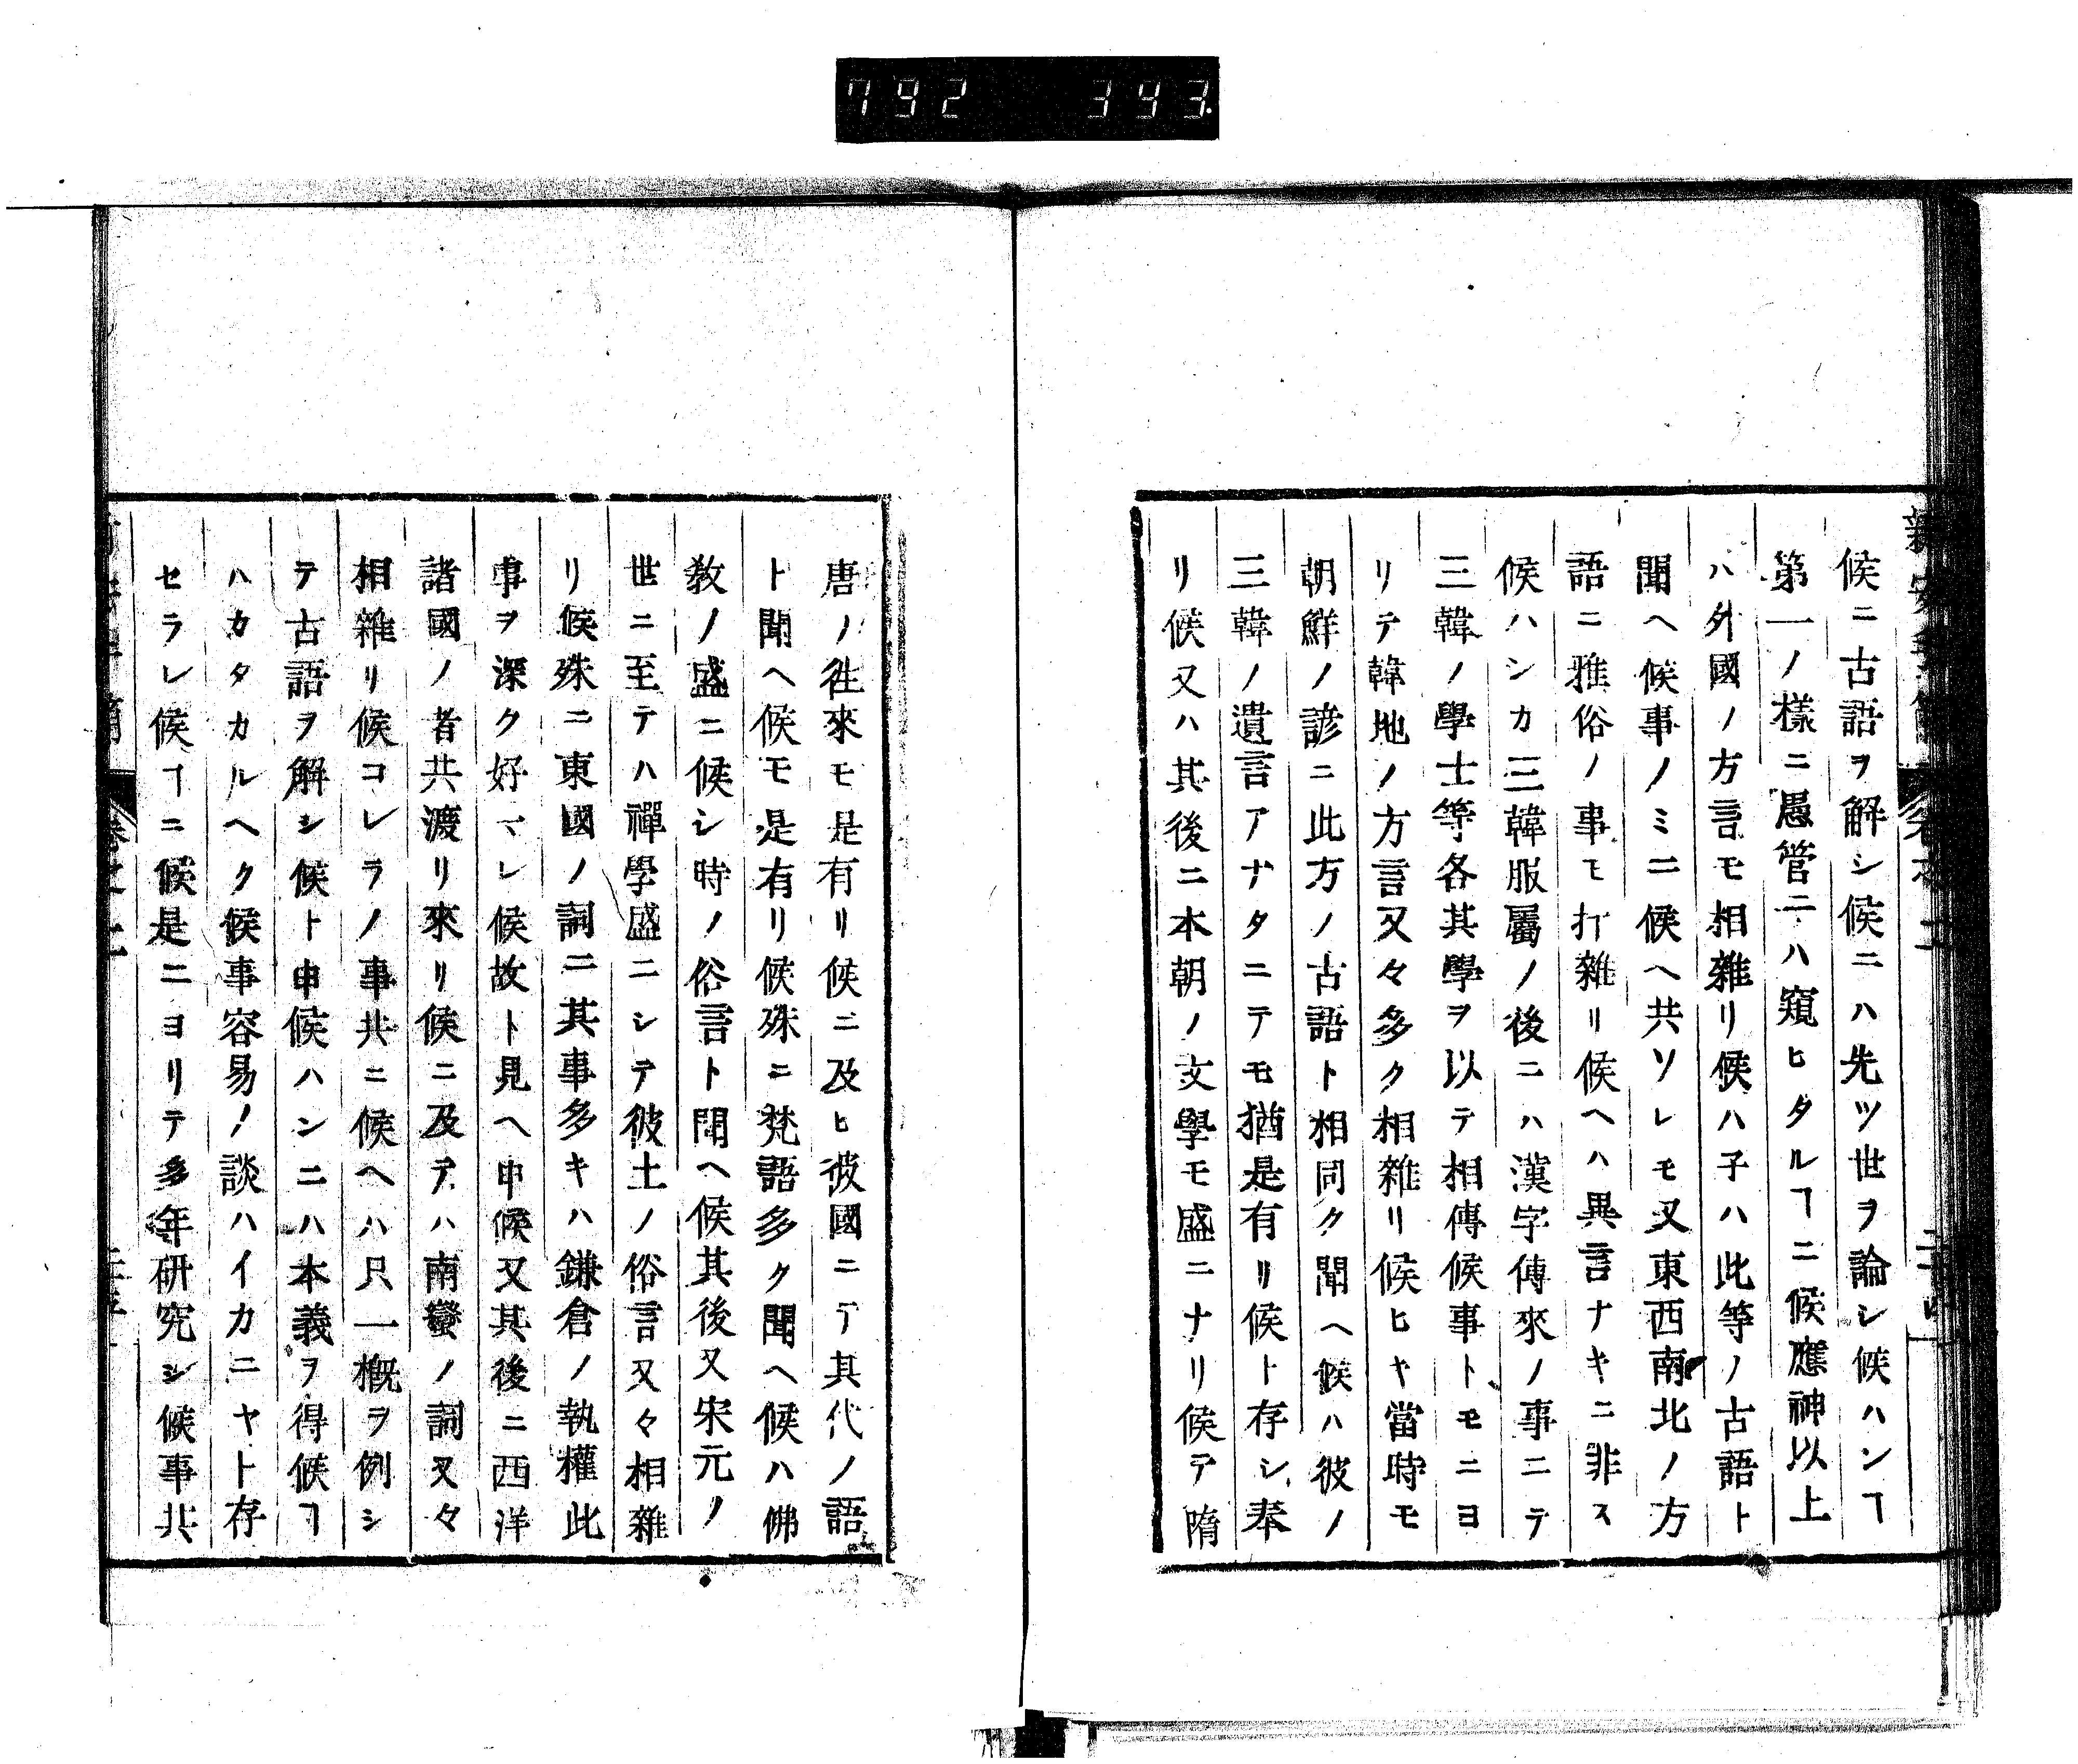 792 393.
候ニ古語ヲ解シ候ニハ先ツ世ヲ論シ候ハンヿ
第一ノ樣ニ愚管ニハ窺ヒタルヿニ候應神以上
ハ外國ノ方言モ相雜リ候ハ子ハ此等ノ古語ト
聞ヘ候事ノミニ候ヘ共ソレモ又東西南北ノ方
語ニ雅俗ノ事モ打雜リ候ヘハ異言ナキニ非ス
候ハンカ三韓服屬ノ後ニハ漢字傳來ノ事ニテ
三韓ノ學士等各其學ヲ以テ相傳候事トモニヨ
リテ韓地ノ方言又々多ク相雜リ候ヒキ當時モ
朝鮮ノ諺ニ此方ノ古語ト相同ク聞ヘ候ハ彼ノ
三韓ノ遺言アナタニテモ猶是有リ候ト存シ奉
リ候又ハ其後ニ本朝ノ文學モ盛ニナリ候テ隋
唐ノ徃來モ是有リ候ニ及ヒ彼國ニテ其代ノ語
ト聞ヘ候モ是有リ候殊ニ梵語多ク聞ヘ候ハ佛
敎ノ盛ニ候シ時ノ俗言ト聞ヘ候其後又宋元ノ
世ニ至テハ禪學盛ニシテ彼土ノ俗言又々相雜
リ候殊ニ東國ノ詞ニ其事多キハ鎌倉ノ執權此
事ヲ深ク好マレ候故ト見ヘ申候又其後ニ西洋
諸國ノ者共渡リ來リ候ニ及テハ南蠻ノ詞又々
相雜リ候コレラノ事共ニ候ヘハ只一槪ヲ例シ
テ古語ヲ解シ候ト申候ハンニハ本義ヲ得候ヿ
ハカタカルヘク候事容易ノ談ハイカニヤト存
セラレ候ヿニ候是ニヨリテ多年硏究シ候事共